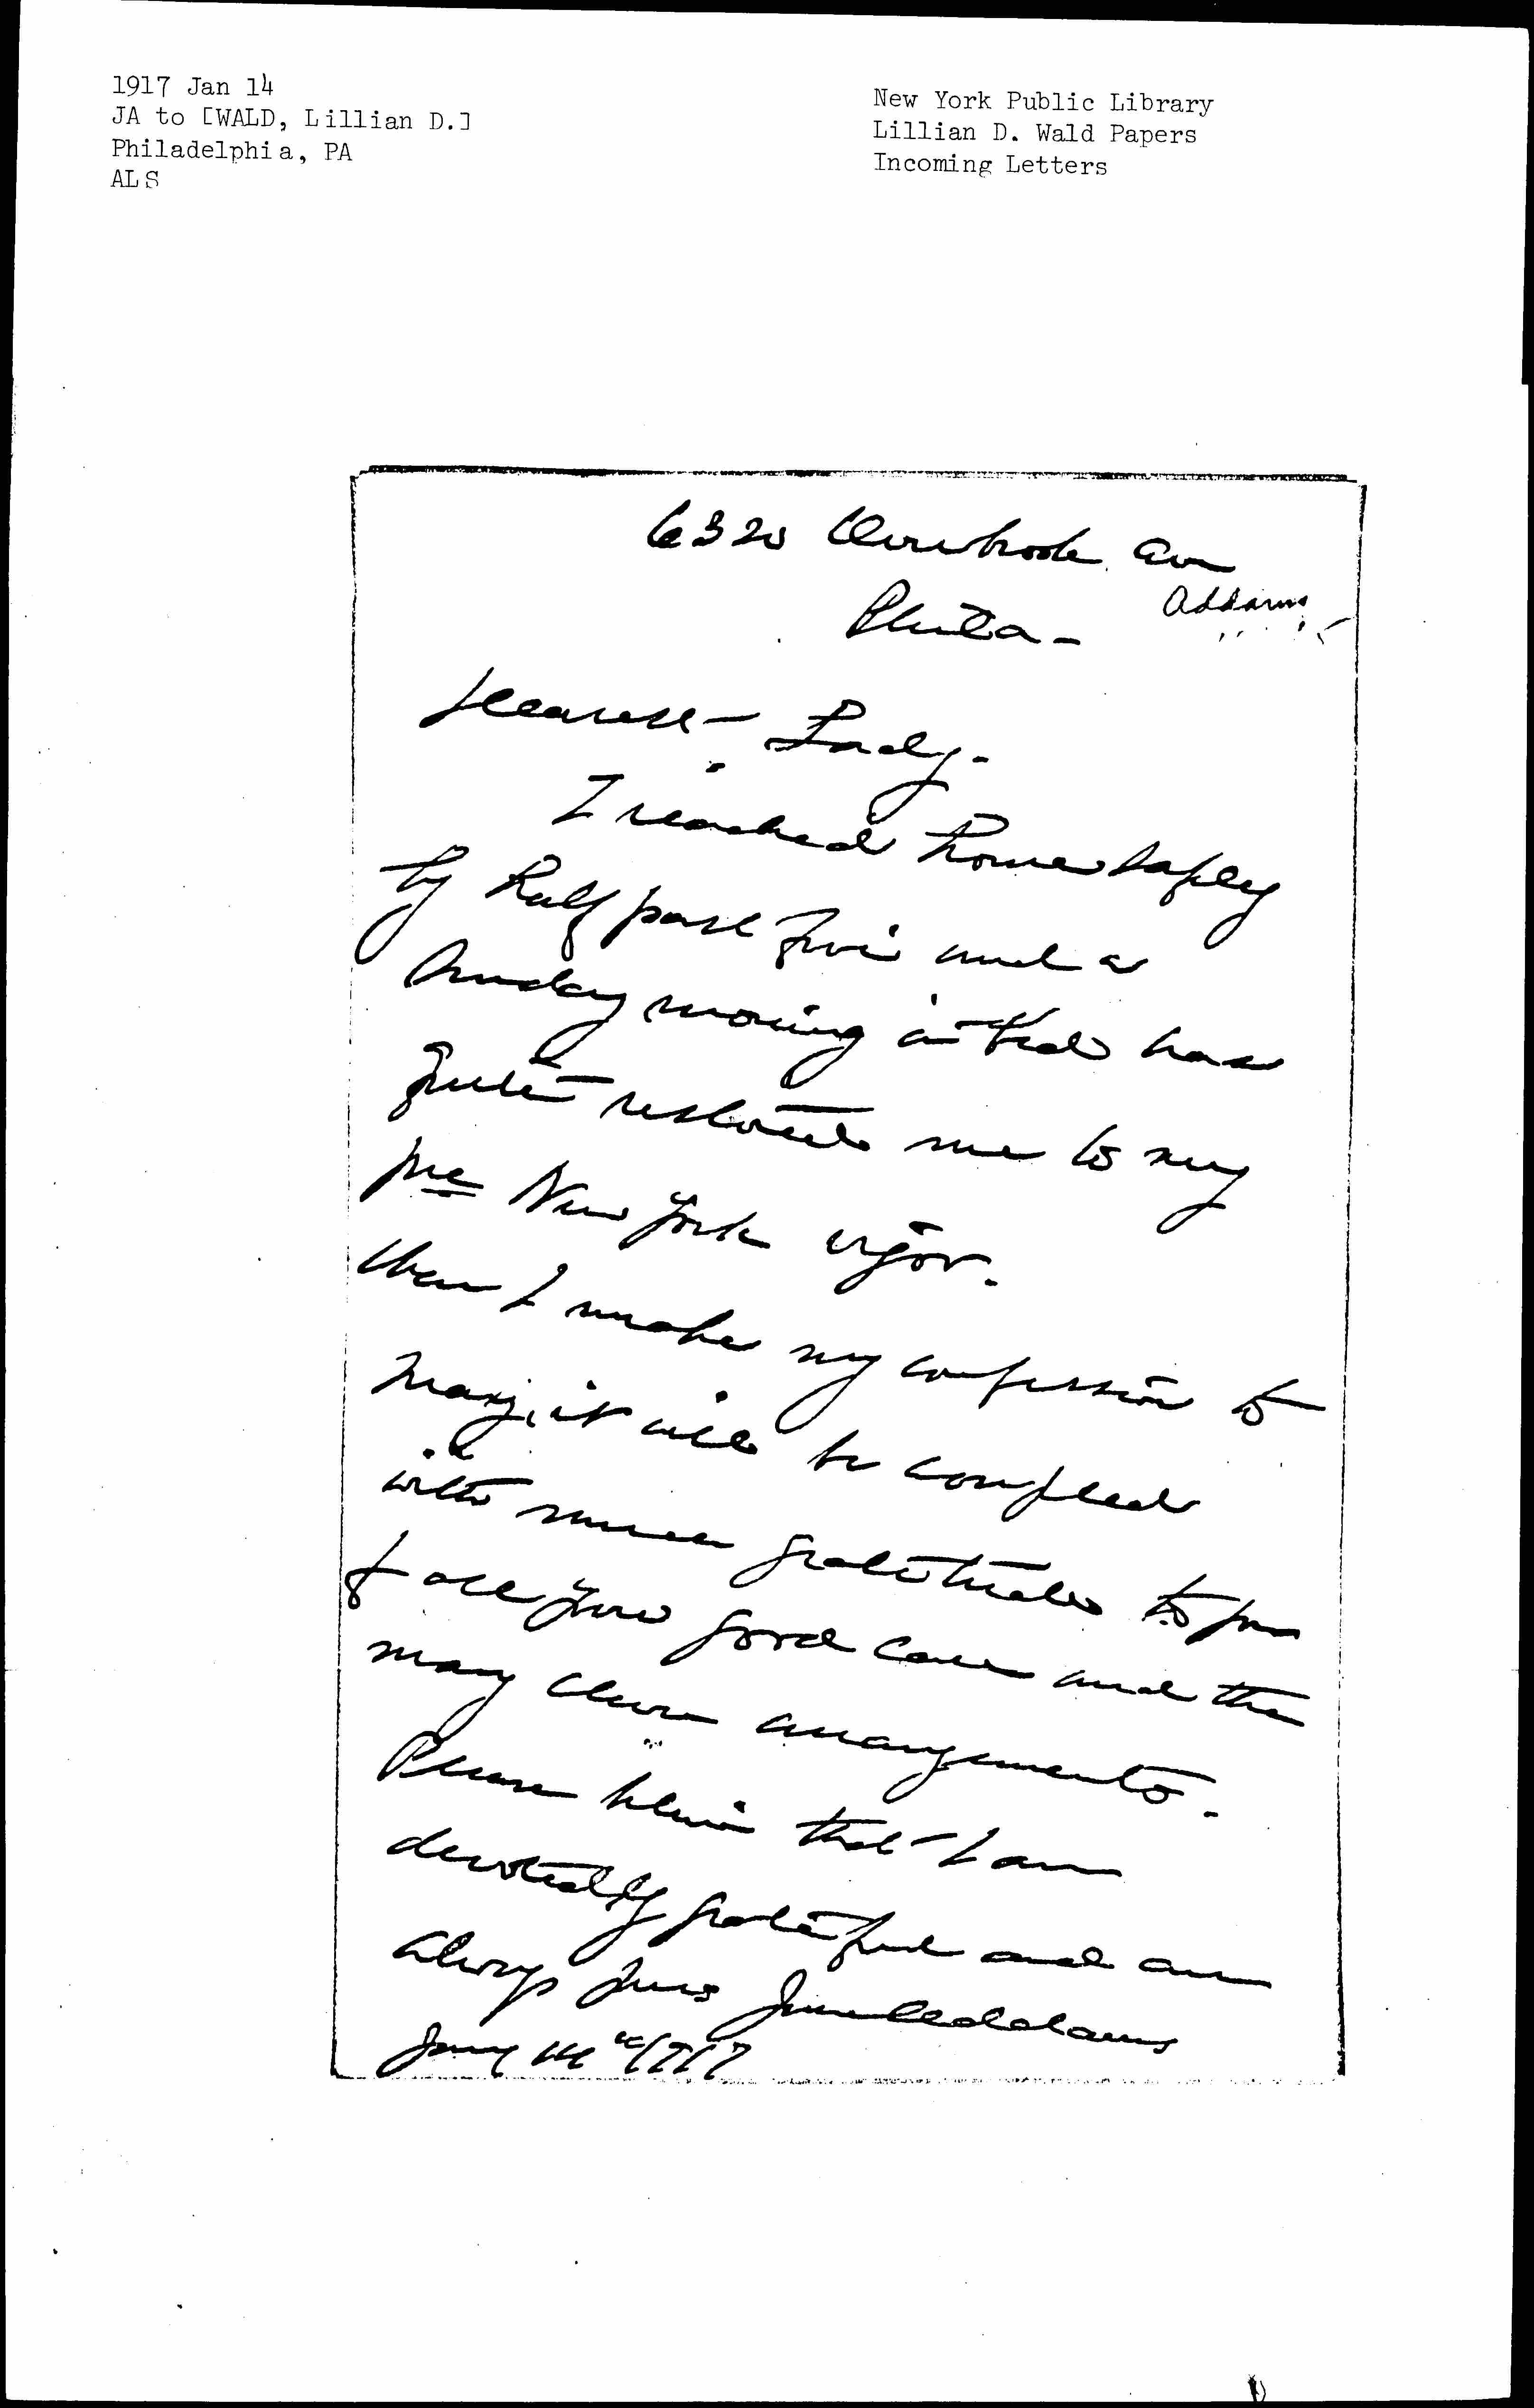 1917 Jan 14
JA to [WALD, Lillian D.]
Philadelphia, PA
ALS
New York Public Library
Lillian D. Wald Papers
Incoming Letters
6320 Overbrook Ave
Addams
Phila-
Dearest Lady-
I reached home safely
by half past five and a
Sunday morning in bed has
quite restored me to my
pre New York vigor.
When I make my confession to
Mary, it will be coupled
with much gratitude to you
for all your good care and the
many clever arrangements.
Please believe that I am
devotedly grateful and am
always yours Jane Addams
Jany 14" 1917